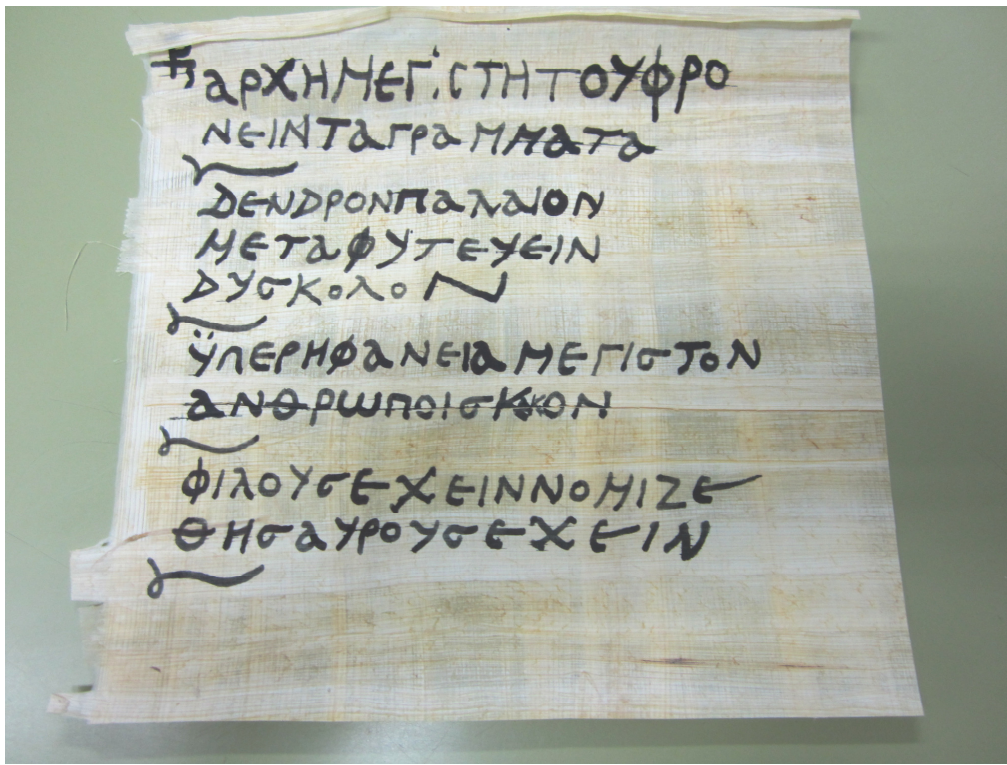 ⳨ ΑΡΧΗΜΕΓΙСΤΗΤΟΥΦΡΟ
ΝΕΙΝΤΑΓΡΑΜΜΑΤΑ
ΔΕΝΔΡΟΝΠΑΛΑΙΟΝ
ΜΕΤΑΦΥΤΕΥΕΙΝ
ΔΥΣΚΟΛΟΝ
ΫΠΕΡΗΦΑΝΕΙΑΜΕΓΙΣΤΟΝ
ΑΝΘΡΩΠΟΙΣΚΑΚΟΝ
ΦΙΛΟΥΣΕΧΕΙΝΝΟΜΙΖΕ
ΘΗΣΑΥΡΟΥΣΕΧΕΙΝ